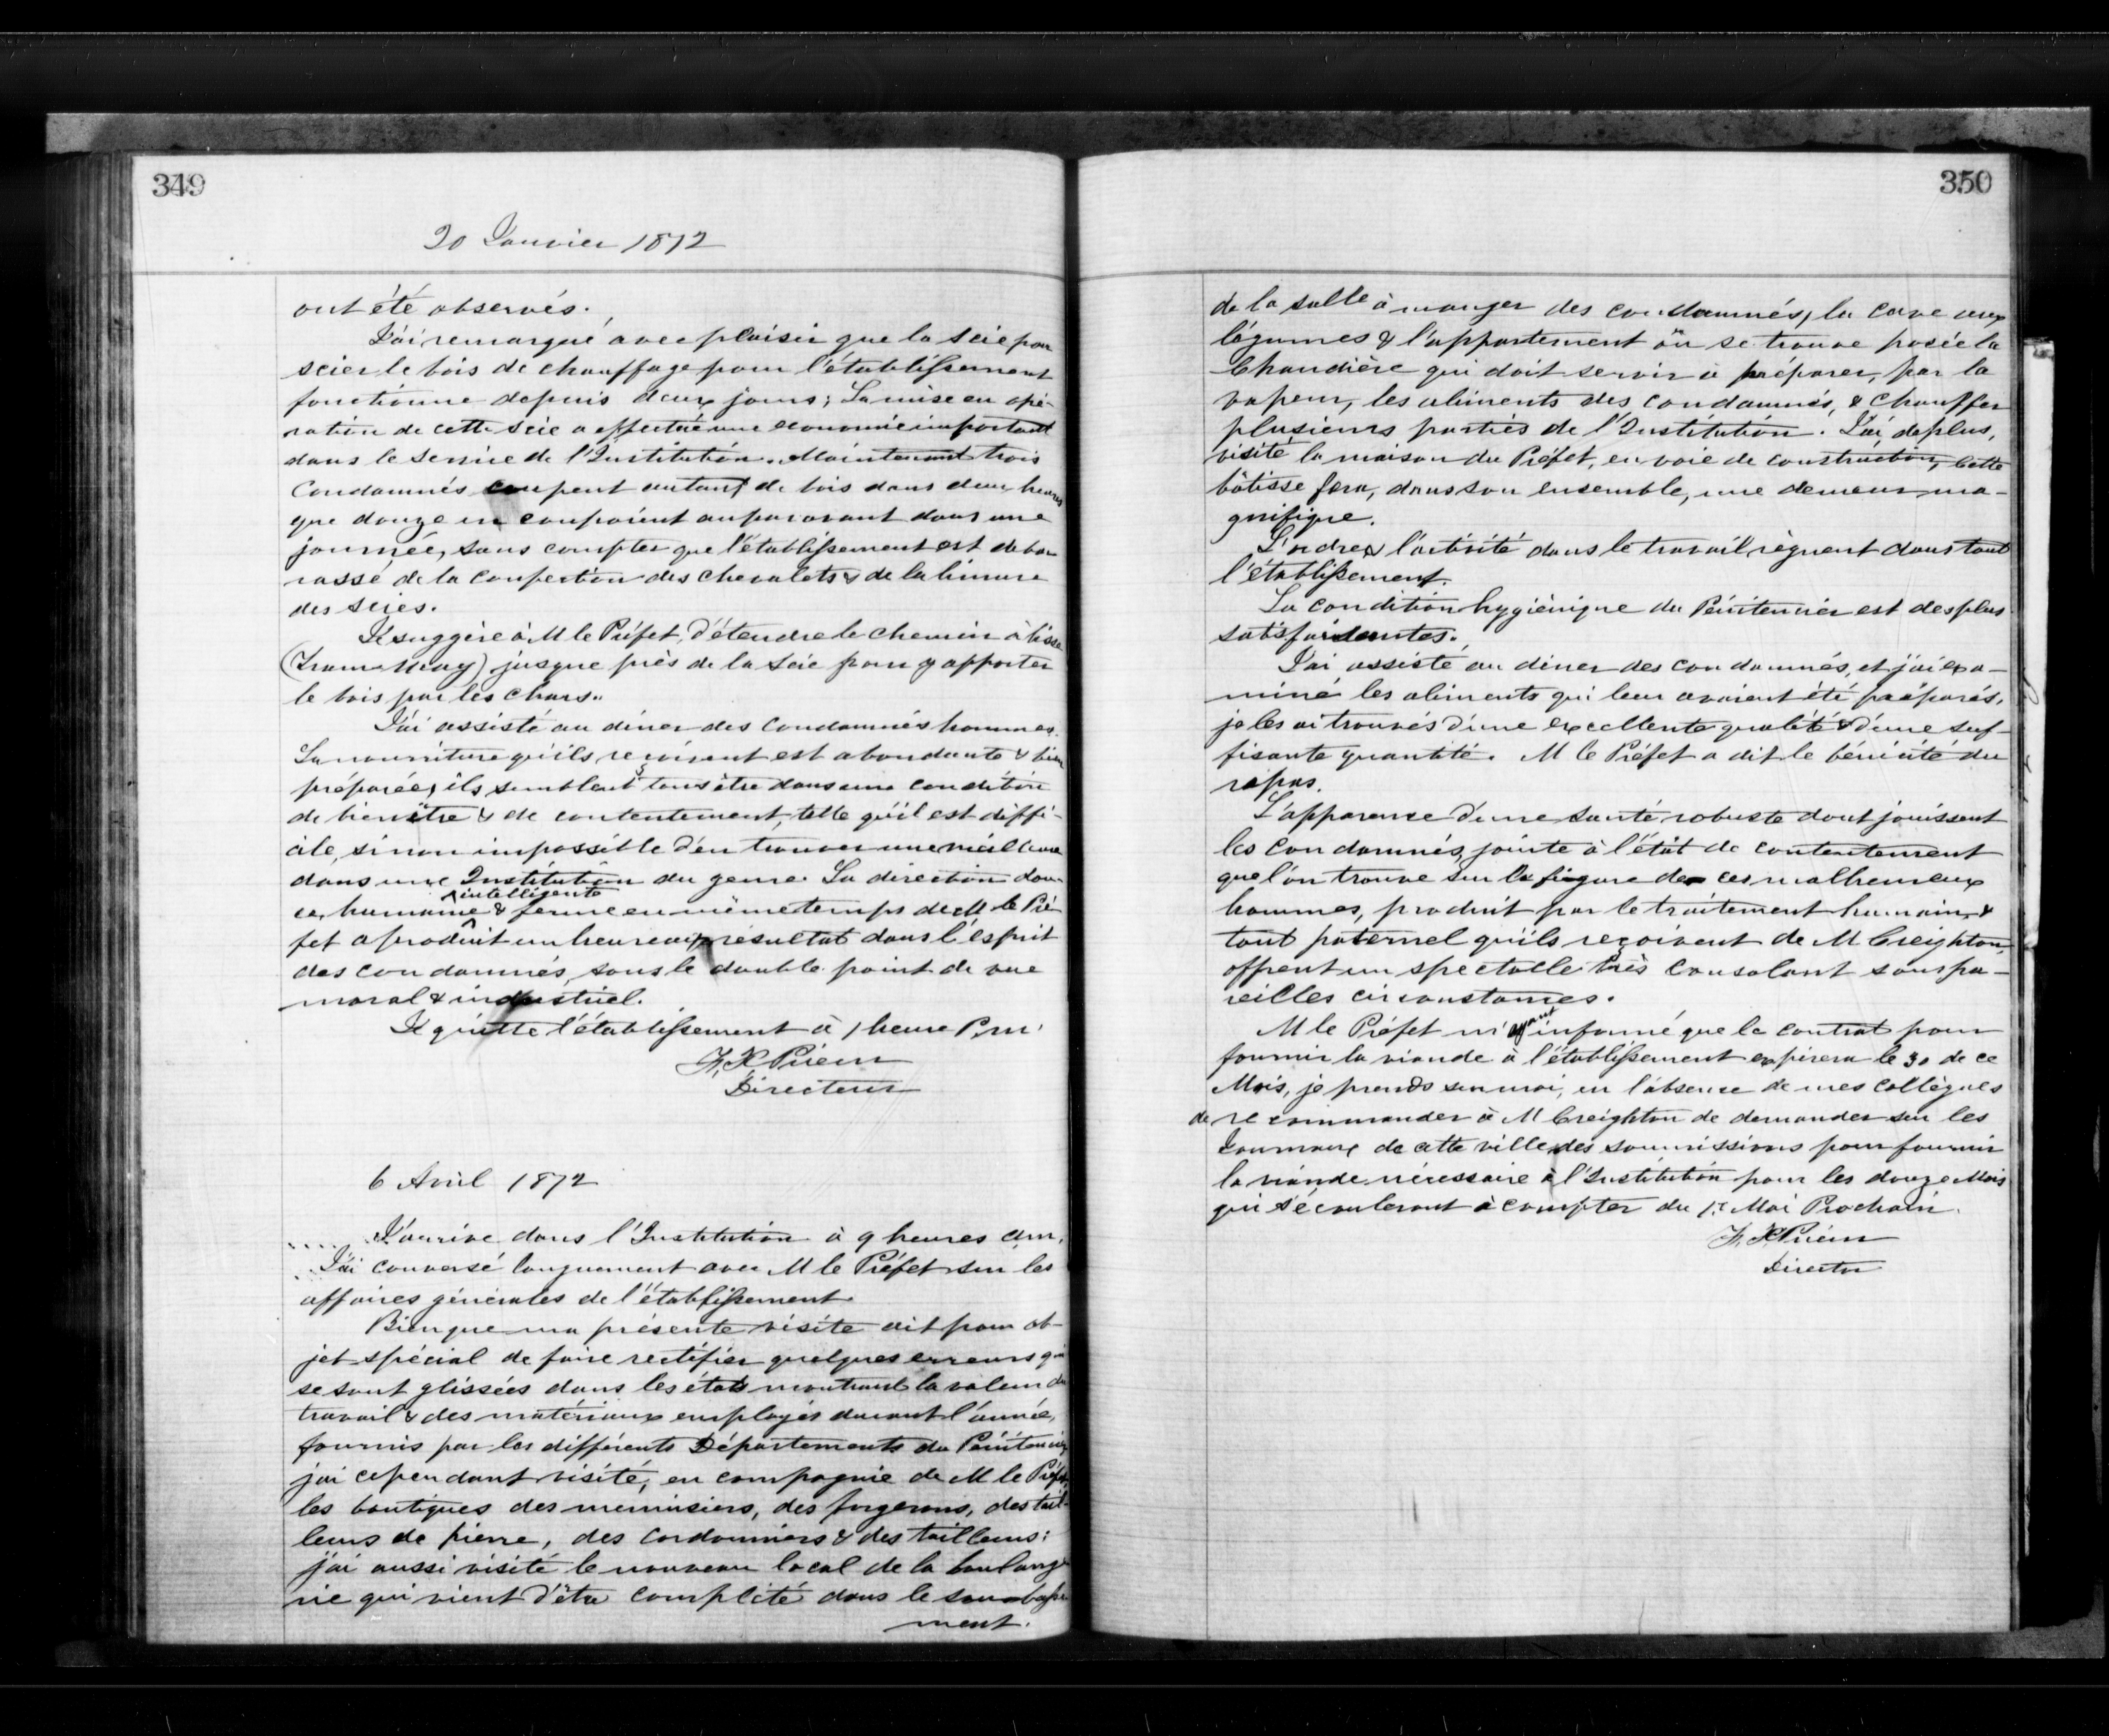 349
20 Janvier 1872
ont été observés.
J'ai remarqué avec plaisir que la Scie pour
scier le bois de chauffage pour l'établissement
fonctionne depuis deux jours; La mise en opé-
ration de cette Scie a effectué une economie important
dans le service de l'Institution. Maintenant trois
Condamnés coupent autant de bois dans deux heures
que douze en coupaient auparavant dans une
journée, sans compter que l'établissement est debar
rassé de la confection des chevalets & de la limure
des scies.
Je suggère à M le Préfet, d'étendre le chemin à lisse
(Tram-Way) jusque près de la Scie pour y apporter
le bois par les chars.
J'ai assisté au diner des Condamnés hommes.
La nourriture qu'ils reçoivent est abondante & bien
préparée, ils semblent tous être dans une condition
de bien être & de contentement, telle qu'il est diffi-
cile, sinon impossible d'en trouver une meilleure
dans une Institution du genre. La direction dou-
ce, humaine intelligente & ferme en même temps de M le Pré
fet a produit un heureux résultat dans l'esprit
des condamnés, sous le double point de vue
moral & industriel.
Je quitte l'établissement à 1 heure P.m.
F. X Prieur
Directeur
6 Avril 1872
J'arrive dans l'Institution à 9 heures a.m.
J'ai conversé longuement avec M le Préfet sur les
affaires générales de l'établissement.
Bien que ma présente visite ait pour ob-
jet spécial de faire rectifier quelques erreurs qui
se sont glissées dans les états montrant la valeur du
travail & des matériaux employés durant l'année,
fournis par les différents Départements du Pénitencier
j'ai cependant visité, en compagnie de M le Préfet,
les boutiques des menuisiers, des forgerons, des tail-
leurs de pierre, des cordonniers & des tailleurs:
j'ai aussi visité le nouveau local de la boulange
rie qui vient d'être complété dans le soubasse
ment.
350
de la salle à manger des condamnés, la cave aux
légumes & l'appartement où se trouve posée la
Chaudière qui doit servir à préparer, par la
vapeur, les aliments des condamnés, & chauffer
plusieurs parties de l'Institution. J'ai, de plus,
visité la maison du Préfet, en voie de construction, Cette
bâtisse fera, dans son ensemble, une demeure ma-
gnifique.
L'ordre & l'activité dans le travail, règnent dans tout
l'établissement.
La condition hygiénique du Pénitencier est des plus
satisfaisantes.
J'ai assisté au diner des condamnés, et j'ai exa-
miné les aliments qui leur avaient été préparés,
je les ai trouvés d'une excellente qualité & d'une suf-
fisante quantité. M le Préfet a dit le bénicité du
repas.
L'apparence d'une santé robuste dont jouissent
les condamnés, jointe à l'état de contentement
que l'on trouve sur la figure de ces malheureux
hommes, produit par le traitement humain &
tout paternel qu'ils reçoivent de M Creighton,
offrent un spectacle très consolant sous pa-
reilles circonstances.
M le Préfet m'ayant informé que le contrat pour
fournir la viande à l'établissement expirera le 30 de ce
Mois, je prends sur moi, en l'absence de mes Collègues
de recommander à M Creighton de demander sur les
Journaux de cette ville, des soumissions pour fournir
la viande nécessaire à l'Institution pour les douze Mois
qui s'écouleront à compter du 1r Mai Prochain.
F. X Prieur
Director